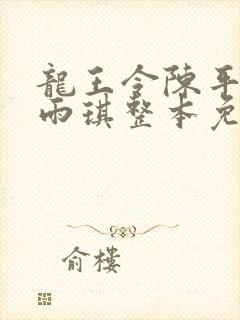 龍王令陳平
雨琪整本免
俞樓